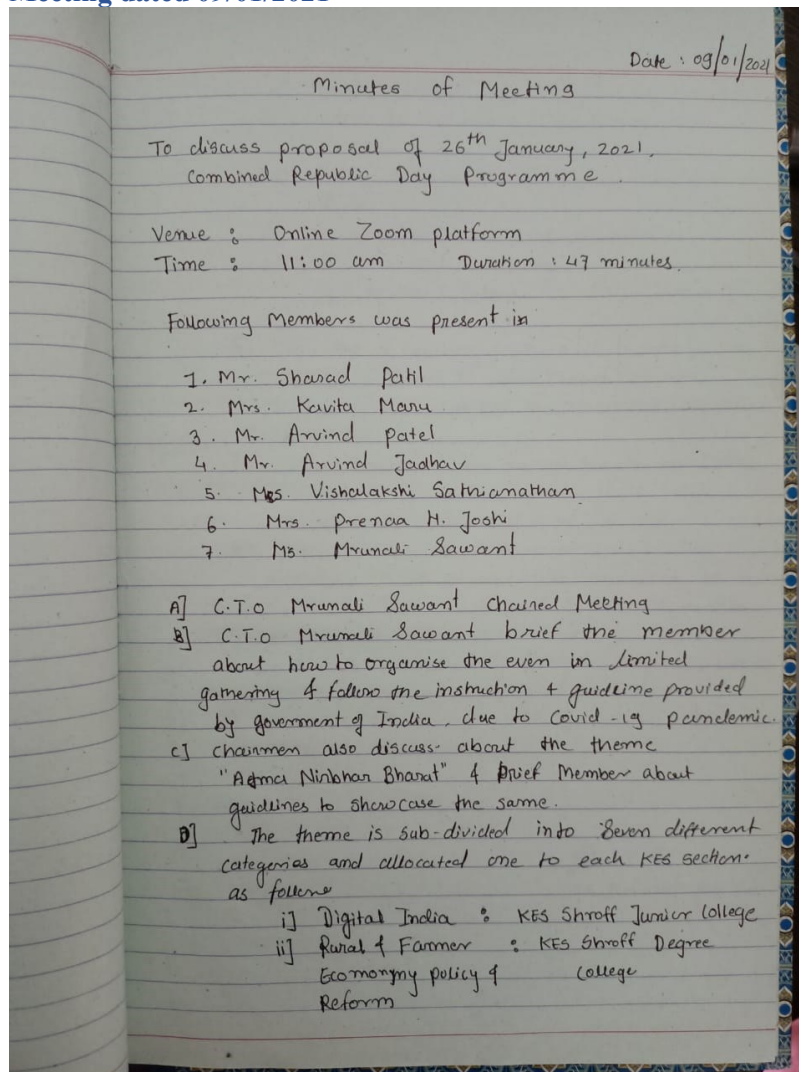 Meeting dated 09/01/2021
Date : 09/01/2021
Minutes of Meeting
To discuss proposal of 26th January, 2021,
Combined Republic Day Programme.
Venue : Online Zoom platform
Time : 11:00 am Duration : 47 minutes.
Following Members was present in
1. Mr. Sharad Patil
2. Mrs. Kavita Maru
3. Mr. Arvind Patel
4. Mr. Arvind Jadhav
5. Mrs. Vishalakshi Sathianathan
6. Mrs. Prenaa H. Joshi
7. Ms. Mrunali Sawant
A] C.T.O Mrunali Sawant Chaired Meeting
B] C.T.O Mrunali Sawant brief the member
about how to organise the even in limited
gathering & follow the instruction & guideline provided
by government of India, due to Covid-19 pandemic.
C] Chairmen also discuss about the theme
"Aatma Nirbhar Bharat" & brief Member about
guidlines to showcase the same.
D] The theme is sub-divided into Seven different
categories and allocated one to each KES section.
as follows
i] Digital India : KES Shroff Junior College
ii] Rural & Farmer : KES Shroff Degree
Ecomonmy policy & College
Reform